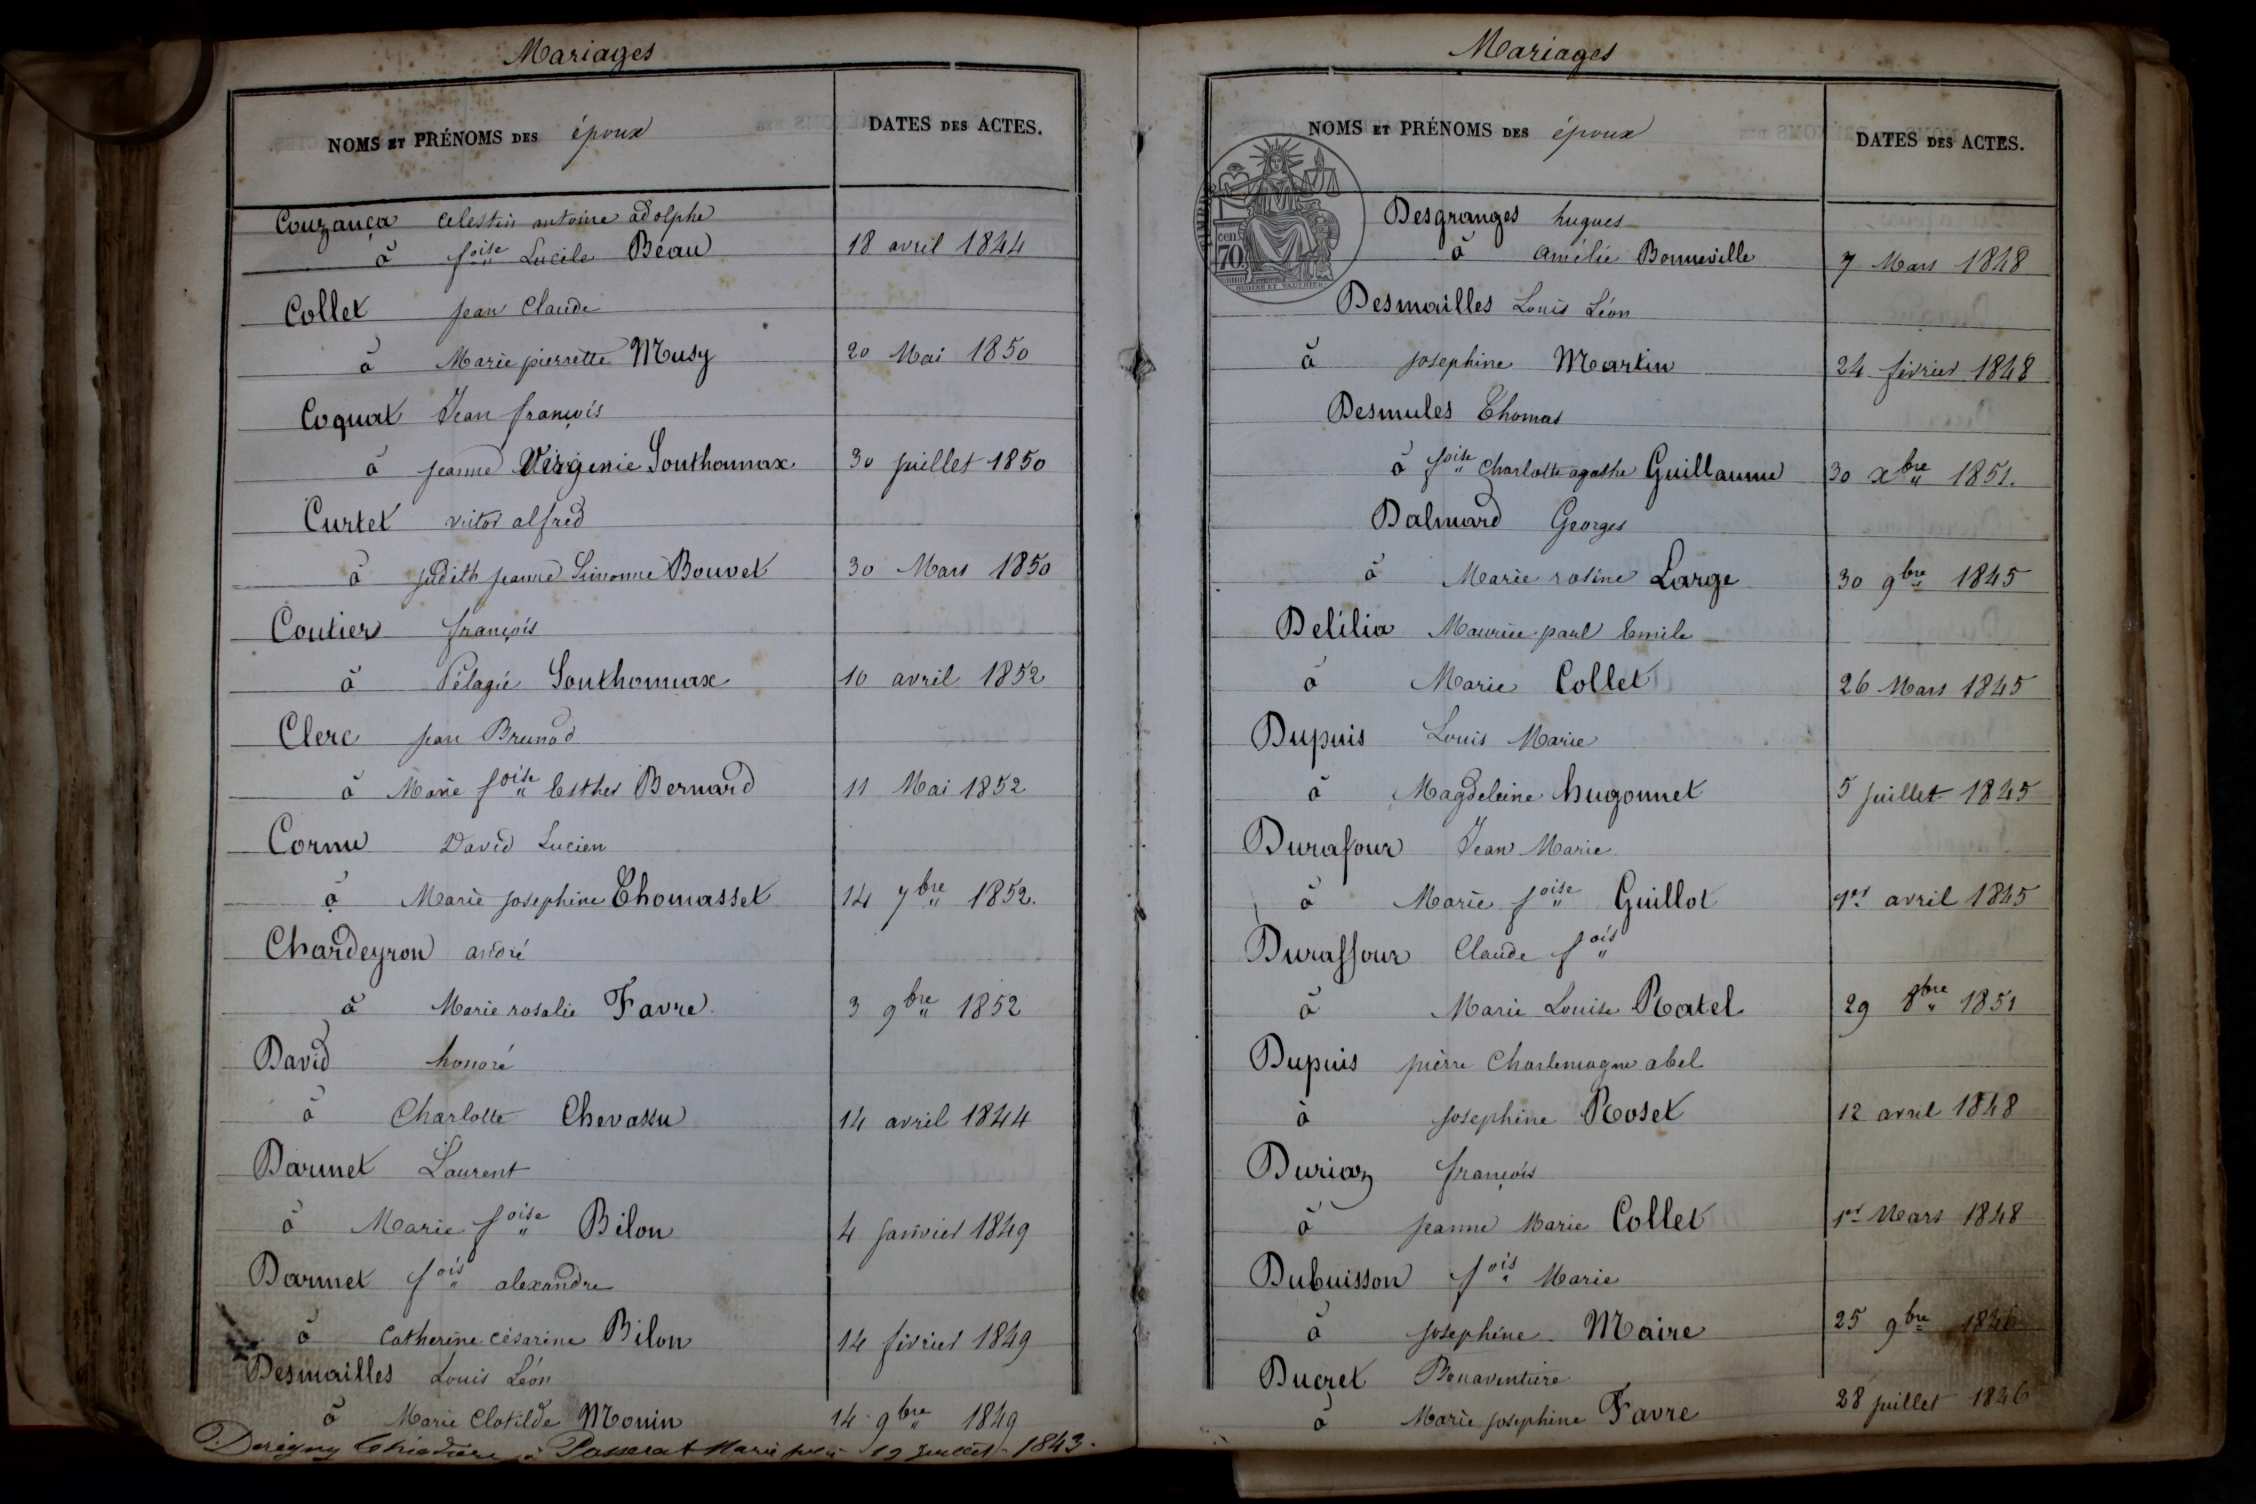 Mariages
NOMS ET PRÉNOMS DES époux
DATES DES ACTES.
Couzança Celestin antoine adolphe
à foise Lucile Béau 18 avril 1844
Collet Jean Claude
à Marie pierrette Musy 20 Mai 1850
Coquat Jean françois
à Jeanne Virginie Southonnax 30 juillet 1850
Curtet victor alfred
à Judith jeanne Simonne Bouvet 30 Mars 1850
Coutier françois
à Pélagie Southonnax 10 avril 1852
Clerc jean Brunod
à Marie foise Esther Bernard 11 Mai 1852
Cornu David Lucien
à Marie josephine Thomasset 14 7bre 1852.
Chardeyron andré
à Marie rosalie Favre. 3 9bre 1852
David honoré
à Charlotte Chevassu 14 avril 1844
Darmet Laurent
à Marie foise Bilon 4 janvier 1849
Darmet fois alexandre
à Catherine césarine Bilon 14 février 1849
Desmailles Louis Léon
à Marie Clotilde Monin 14 9bre 1849
Derigny à Passerat Marie 19 Juillet 1843.
Mariages
NOMS ET PRÉNOMS DES époux
DATES DES ACTES.
70 cens
Desgranges hugues
à amélie Bonneville 7 Mars 1848
Desmailles Louis Léon
à josephine Martin 24 février 1848
Desmules Thomas
à foise Charlotte agathe Guillaume 30 xbre 1851.
Dalmard Georges
à Marie rosine Large 30 9bre 1845
Delilia Maurice paul Emile
à Marie Collet 26 Mars 1845
Dupuis Louis Marie
à Magdeleine hugonnet 5 juillet 1845
Durafour Jean Marie
à Marie foise Guillot 1er avril 1845
Duraffour Claude fois
à Marie Louise Ratel 29 8bre 1851
Dupuis pierre Charlemagne abel
à josephine Roset 12 avril 1848
Duriaz françois
à jeanne Marie Collet 1er Mars 1848
Dubuisson fois Marie
à josephine Maire 25 9bre 1846
Ducret Bonaventure
à Marie josephine Favre 28 juillet 1846